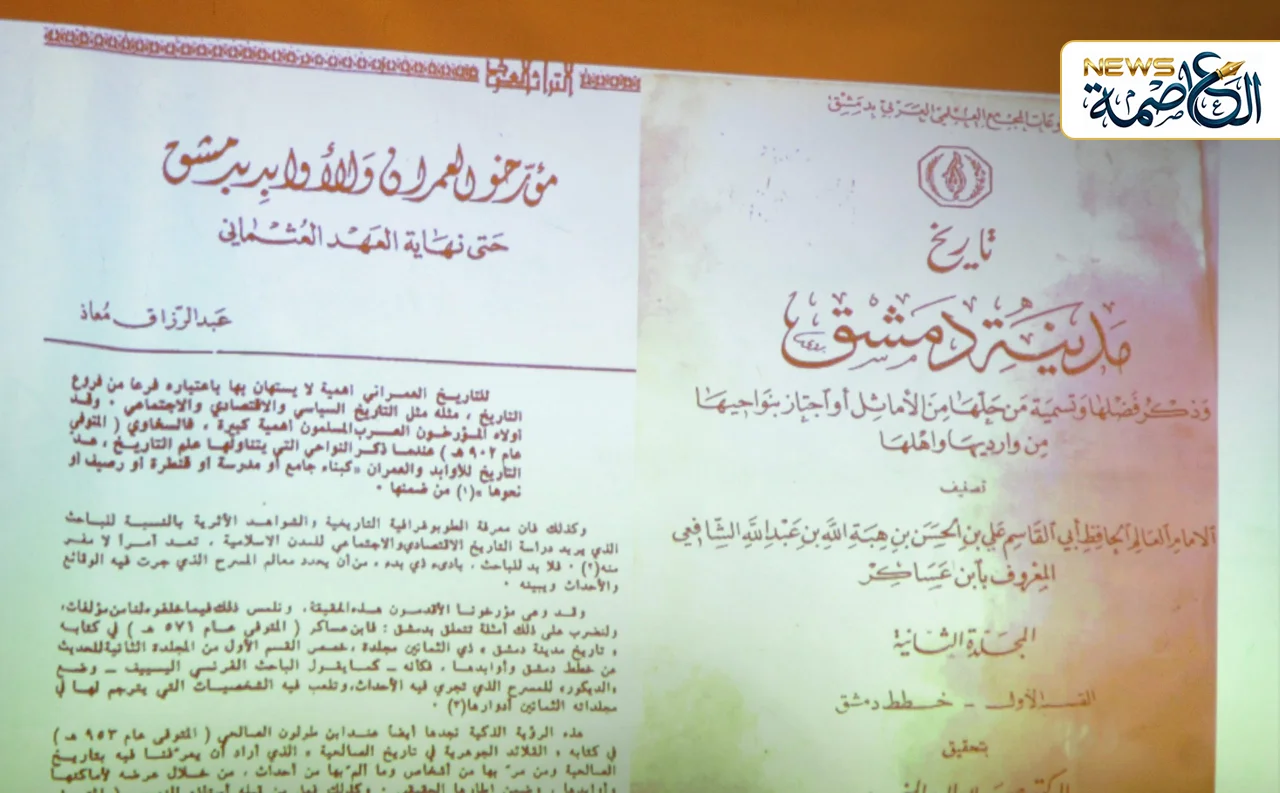 NEWS
العاصمة
مطبوعات المجمع العلمي العربي بدمشق
تاريخ
مدينة دمشق
وذكر فضلها وتسمية من حلها من الأماثل أو اجتاز بنواحيها
من وارديها واهلها
تصنيف
الامام العالم الحافظ أبي القاسم علي بن الحسن بن هبة الله بن عبدالله الشافعي
المعروف بابن عساكر
المجلدة الثانية
القسم الأول - خطط دمشق
بتحقيق
التراث العربي
مؤرخو العمران والأوابد بدمشق
حتى نهاية العهد العثماني
عبد الرزاق معاذ
للتاريخ العمراني اهمية لا يستهان بها باعتباره فرعا من فروع
التاريخ ، مثله مثل التاريخ السياسي والاقتصادي والاجتماعي . وقد
أولاه المؤرخون العرب المسلمون أهمية كبيرة ، فالسخاوي ( المتوفي
عام ٩٠٢ هـ ) عندما ذكر النواحي التي يتناولها علم التاريخ ، عد
التاريخ للأوابد والعمران «كبناء جامع أو مدرسة أو قنطرة أو رصيف أو
نحوها »(١) من ضمنها .
وكذلك فان معرفة الطوبوغرافية التاريخية والشواهد الأثرية بالنسبة للباحث
الذي يريد دراسة التاريخ الاقتصادي والاجتماعي للمدن الاسلامية ، تعد أمراً لا مفر
منه(٢) . فلا بد للباحث ، بادىء ذي بدء ، من أن يحدد معالم المسرح الذي جرت فيه الوقائع
والأحداث ويبينه .
وقد وعى مؤرخونا الأقدمون هذه الحقيقة ، ونلمس ذلك فيما خلفوه لنا من مؤلفات،
ولنضرب على ذلك أمثلة تتعلق بدمشق : فابن عساكر ( المتوفى عام ٥٧١ هـ ) في كتابه
« تاريخ مدينة دمشق » ذي الثمانين مجلدة ، خصص القسم الأول من المجلدة الثانية للحديث
عن خطط دمشق وأوابدها ، فكأنه ــ كما يقول الباحث الفرنسي اليسييف ــ وضع
«الديكور» للمسرح الذي تجري فيه الأحداث، وتلعب فيه الشخصيات التي يترجم لها في
مجلداته الثمانين أدوارها(٣) .
هذه الرؤية الذكية نجدها أيضاً عند ابن طولون الصالحي ( المتوفى عام ٩٥٣ هـ )
في كتابه « القلائد الجوهرية في تاريخ الصالحية » الذي أراد أن يعرفنا فيه بتاريخ
الصالحية ومن مر بها من أشخاص وما ألم بها من أحداث ، من خلال عرضه لأماكنها